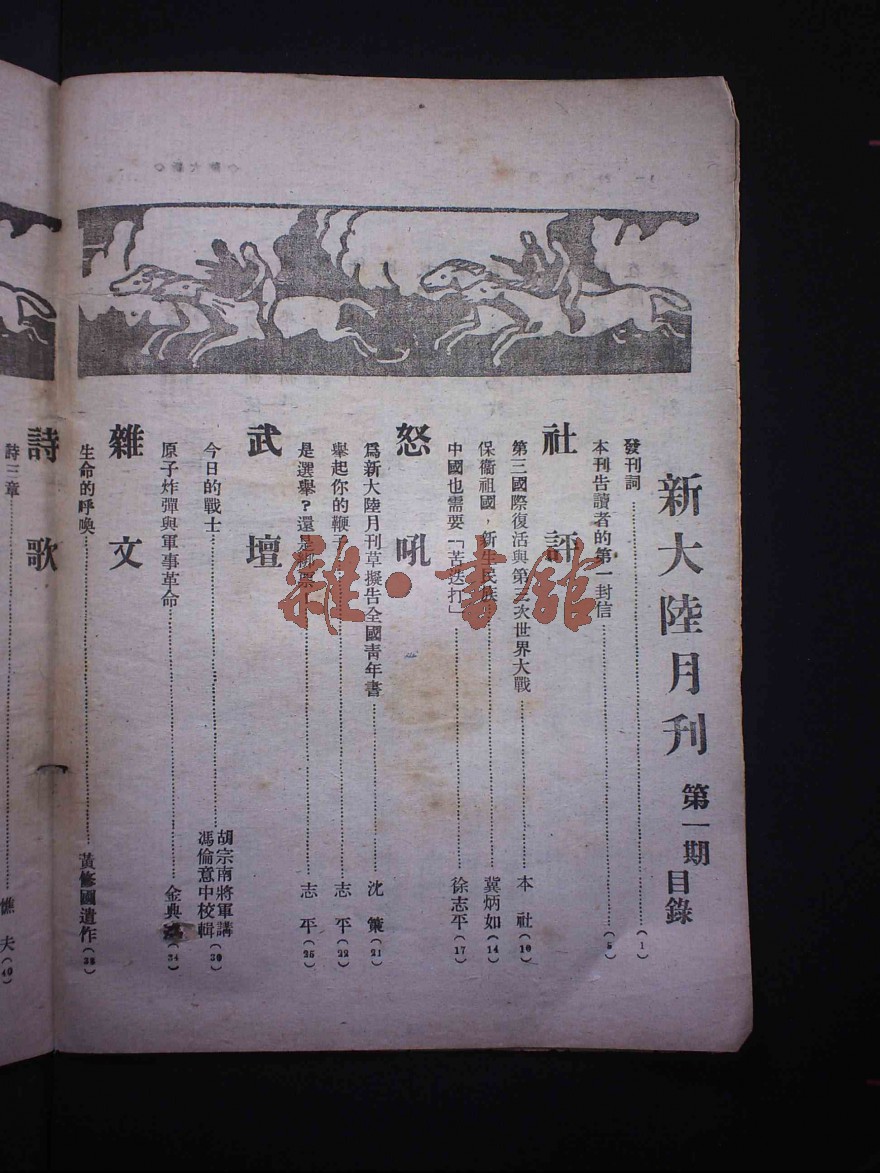 新大陸月刊 第一期目錄
發刊詞………(1)
本刊告讀者的第一封信………(5)
社評
第三國際復活與第三次世界大戰………本社(10)
保衞祖國，新生民族………冀炳如(14)
中國也需要「苦迭打」………徐志平(17)
怒吼
爲新大陸月刊草擬告全國靑年書………沈策(21)
舉起你的鞭子………志平(22)
是選舉？還是………志平(25)
武壇
今日的戰士………胡宗南將軍講 馮倫意中校輯(30)
原子炸彈與軍事革命………金典(34)
雜文
生命的呼喚………黃修國遺作(38)
詩歌
詩三章………憔夫(40)
雜·書館